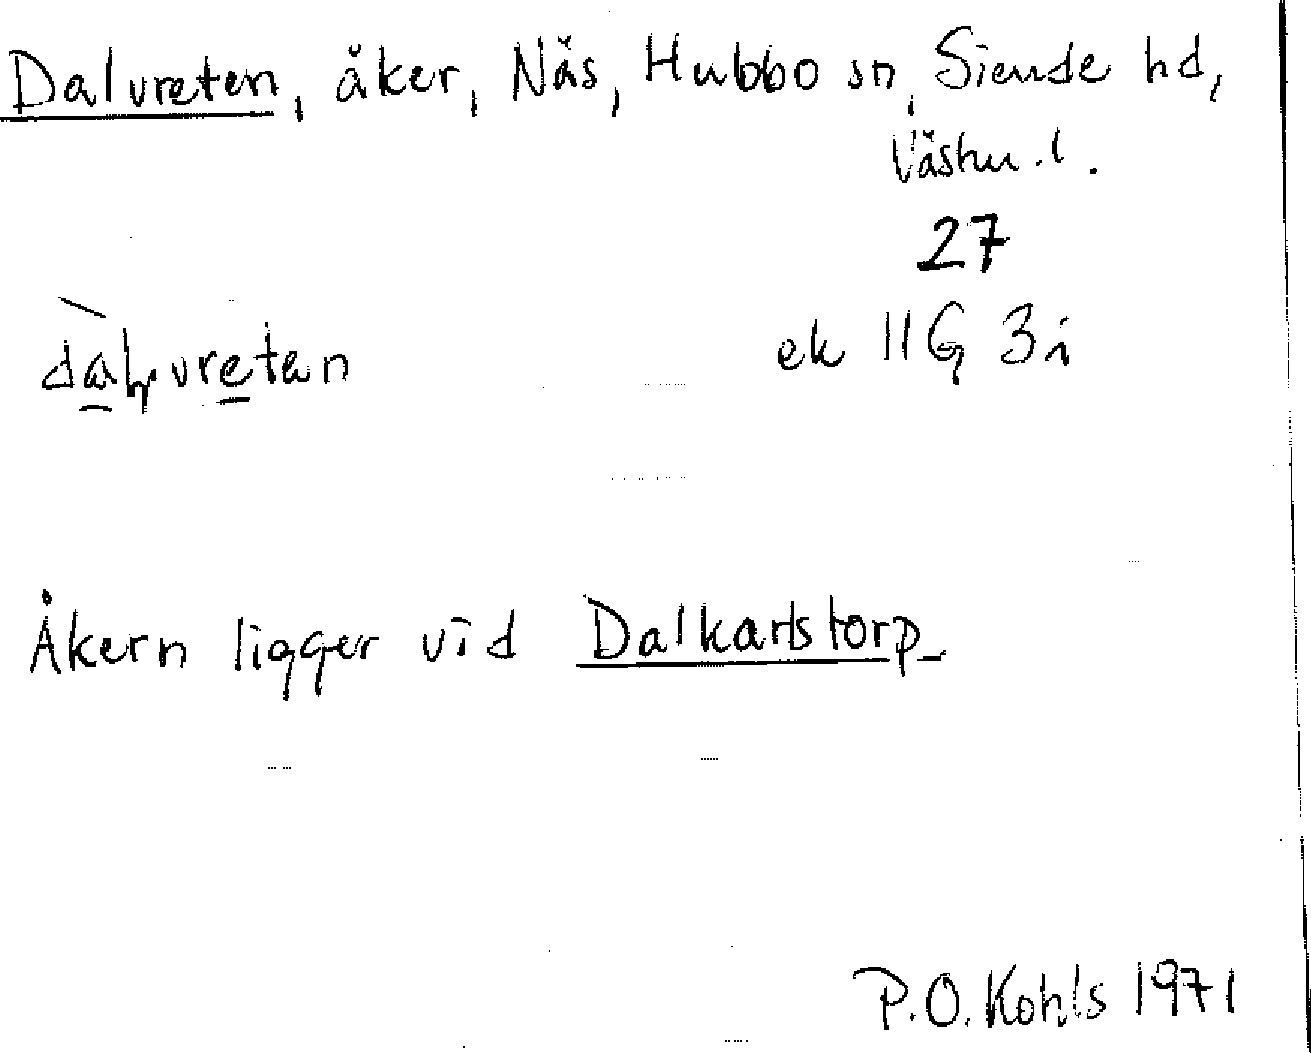 Dalvreten, åker, Näs, Hubbo sn, Siende hd,
Västm. l.
27
dàlvretan
ek 11G 3i
Åkern ligger vid Dalkarlstorp.
P.O. Kohls 1971